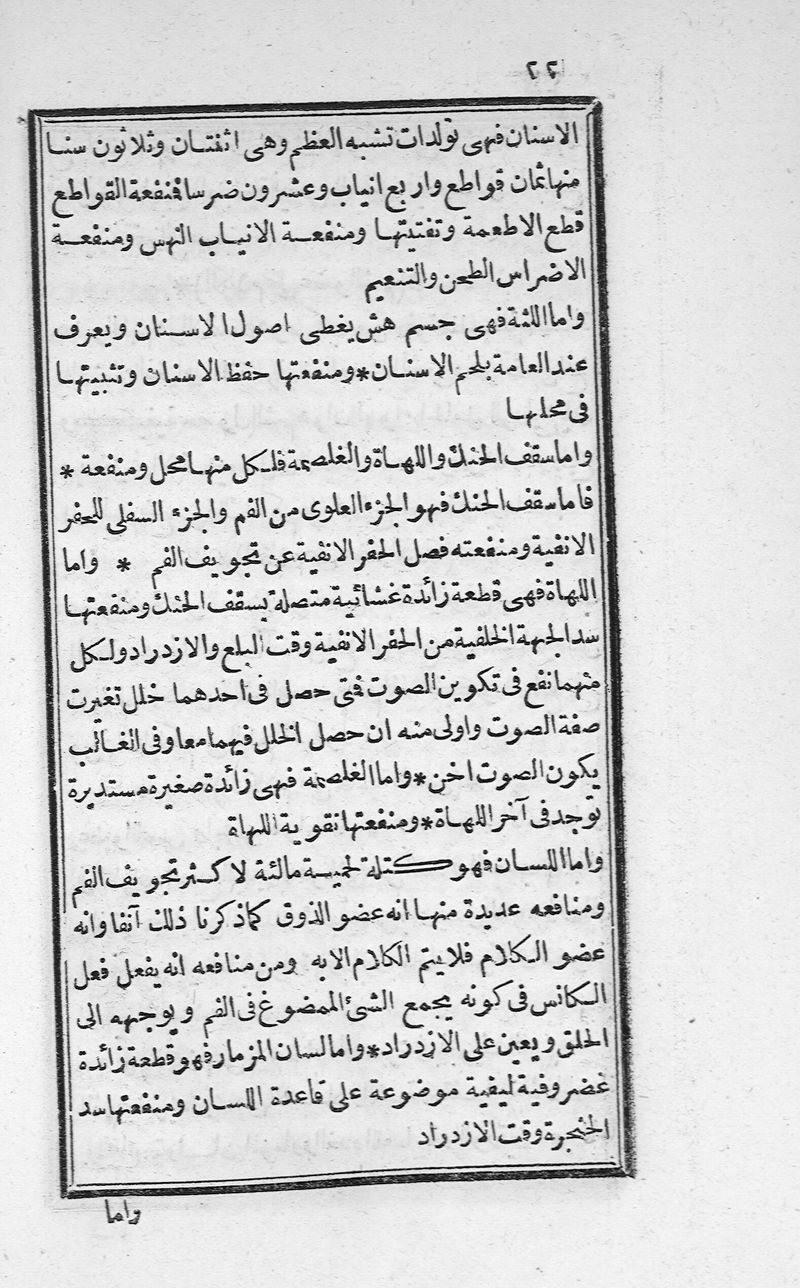 ٢٢
الاسنان فهى تولدات تشبه العظم وهى اثنتان وثلاثون سنا
منها ثمان قواطع واربع انياب وعشرون ضرسا فمنفعة القواطع
قطع الاطعمة وتفتيتها ومنفعة الانياب النهس ومنفعة
الاضراس الطحن والتنعيم
واما اللثة فهى جسم هش يغطى اصول الاسنان ويعرف
عند العامة بلحم الاسنان * ومنفعتها حفظ الاسنان وتثبيتها
فى محلها
واما سقف الحنك واللهاة والغلصمة فلكل منها محل ومنفعة *
فاما سقف الحنك فهو الجزء العلوى من الفم والجزء السفلى للحفر
الانفية ومنفعته فصل الحفر الانفية عن تجويف الفم * واما
اللهاة فهى قطعة زائدة غشائية متصلة بسقف الحنك ومنفعتها
سد الجهة الخلفية من الحفر الانفية وقت البلع والازدراد ولكل
منهما نفع فى تكوين الصوت فمتى حصل فى احدهما خلل تغيرت
صفة الصوت واولى منه ان حصل الخلل فيهما معا وفى الغالب
يكون الصوت اخن * واما الغلصمة فهى زائدة صغيرة مستديرة
توجد فى آخر اللهاة * ومنفعتها تقوية اللهاة
واما اللسان فهو كتلة لحمية مالئة لاكثر تجويف الفم
ومنافعه عديدة منها انه عضو الذوق كما ذكرنا ذلك آنفا وانه
عضو الكلام فلا يتم الكلام الا به ومن منافعه انه يفعل فعل
الكانس فى كونه يجمع الشئ الممضوغ فى الفم ويوجهه الى
الحلق ويعين على الازدراد * واما لسان المزمار فهو قطعة زائدة
غضروفية ليفية موضوعة على قاعدة اللسان ومنفعتها سد
الحنجرة وقت الازدراد
واما